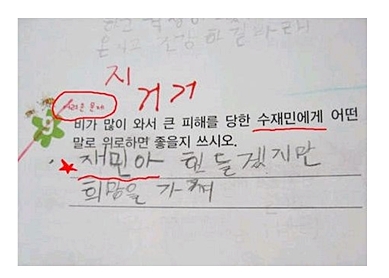 지
거거
9
비가 많이 와서 큰 피해를 당한 수재민에게 어떤
말로 위로하면 좋을지 쓰시오.
재민아 힘들겠지만
희망을 가져